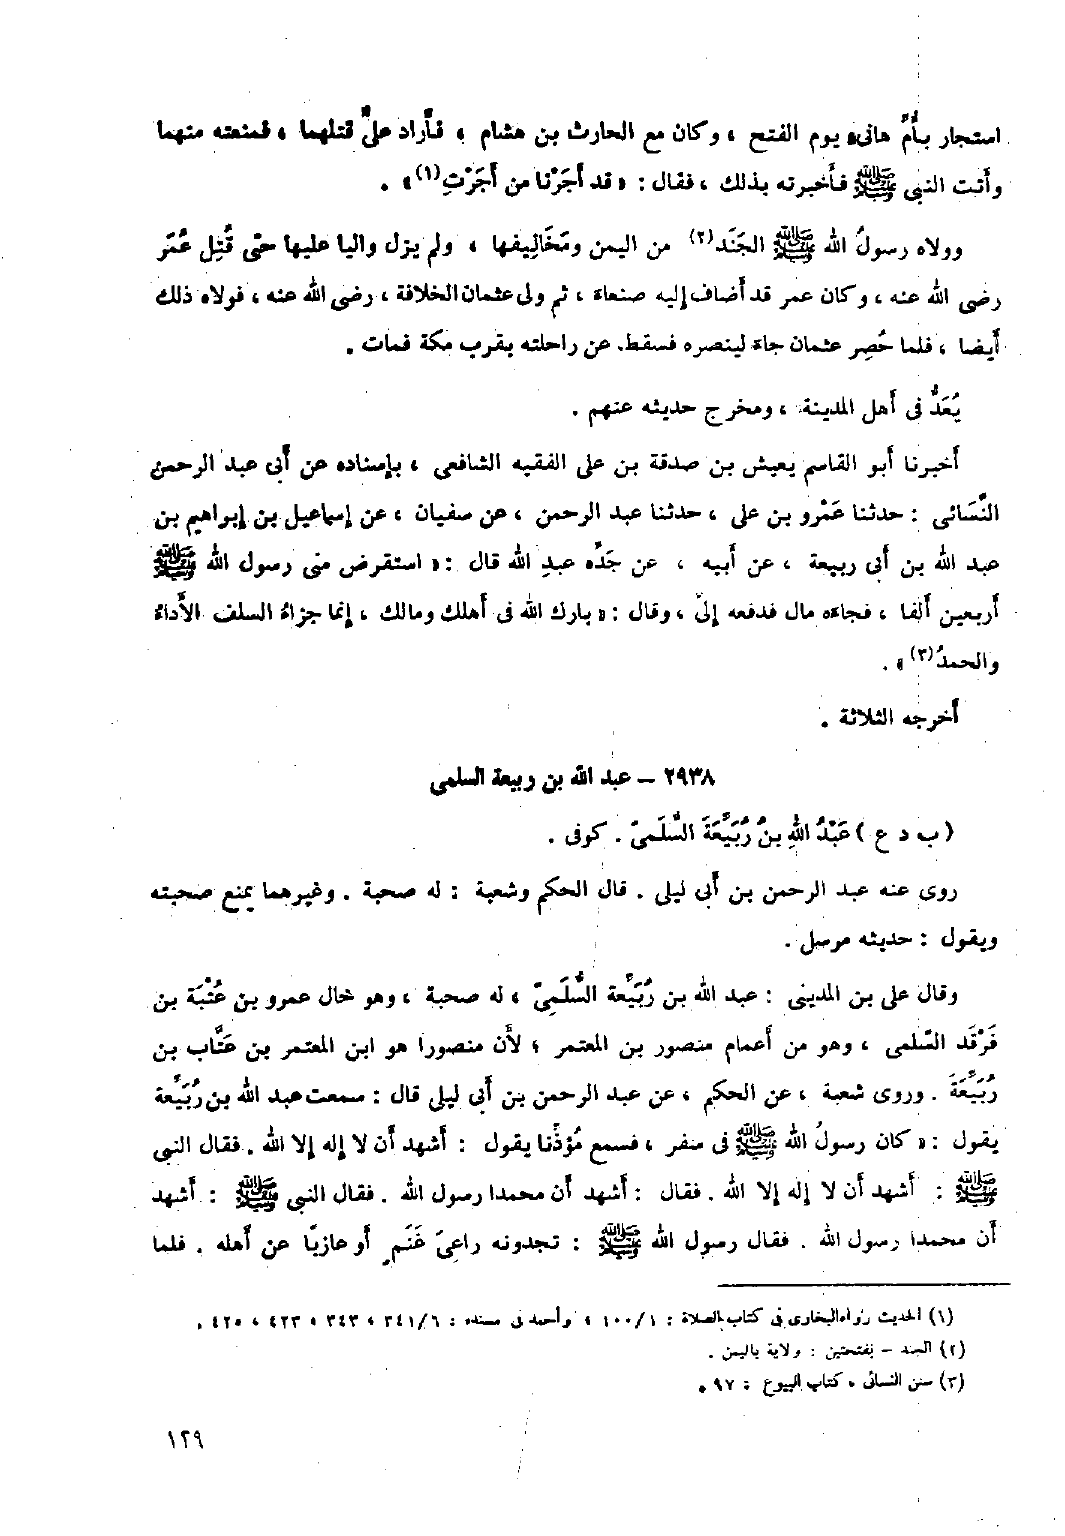 استجار بأُمِّ هانىء يوم الفتح ، وكان مع الحارث بن هشام ، فأراد علىٌّ قتلهما ، فمنعته منهما
وأتت النبى ﷺ فأخبرته بذلك ، فقال : « قد أَجَرْنا من أَجَرْتِ(١) » .
وولاه رسولُ الله ﷺ الجَنَد(٢) من اليمن ومَخَالِيفها ، ولم يزل واليا عليها حتى قُتِل عُمَر
رضى الله عنه ، وكان عمر قد أضاف إليه صنعاء ، ثم ولى عثمان الخلافة ، رضى الله عنه ، فولاه ذلك
أيضا ، فلما حُصِر عثمان جاءَ لينصره فسقط عن راحلته بقرب مكة فمات .
يُعَدُّ فى أهل المدينة ، ومخرج حديثه عنهم .
أخبرنا أبو القاسم يعيش بن صدقة بن على الفقيه الشافعى ، بإسناده عن أبى عبد الرحمن
النَّسَائى : حدثنا عَمْرو بن على ، حدثنا عبد الرحمن ، عن سفيان ، عن إسماعيل بن إبراهيم بن
عبد الله بن أبى ربيعة ، عن أبيه ، عن جَدِّه عبدِ الله قال : « استقرض منى رسول الله ﷺ
أربعين ألفا ، فجاءه مال فدفعه إلىّ ، وقال : « بارك الله فى أهلك ومالك ، إنما جزاءُ السلف الأداءُ
والحمدُ(٣) » .
أخرجه الثلاثة .
٢٩٣٨ – عبد الله بن ربيعة السلمى
( ب د ع ) عَبْدُ اللهِ بنُ رُبَيِّعَةَ السُّلَمىّ . كوفى .
روى عنه عبد الرحمن بن أبى ليلى . قال الحكم وشعبة : له صحبة . وغيرهما يمنع صحبته
ويقول : حديثه مرسل .
وقال على بن المدينى : عبد الله بن رُبَيِّعة السُّلَمِىّ ، له صحبة ، وهو خال عمرو بن عُتْبَة بن
فَرْقَد السّلمى ، وهو من أعمام منصور بن المعتمر ؛ لأن منصورا هو ابن المعتمر بن عَتَّاب بن
رُبَيِّعَةَ . وروى شعبة ، عن الحكم ، عن عبد الرحمن بن أبى ليلى قال : سمعت عبد الله بن رُبَيِّعة
يقول : « كان رسولُ الله ﷺ فى سفر ، فسمع مُؤذِّنا يقول : أشهد أن لا إله إلا الله . فقال النبى
ﷺ : أشهد أن لا إله إلا الله . فقال : أشهد أن محمدا رسول الله . فقال النبى ﷺ : أشهد
أن محمدا رسول الله . فقال رسول الله ﷺ : تجدونه راعىَ غَنَمٍ أو عازبًا عن أهله . فلما
(١) الحديث رواه البخارى فى كتاب الصلاة : ١/١٠٠ ، وأحمد فى مسنده : ٦/٣٤١ ، ٣٤٣ ، ٤٢٣ ، ٤٢٥ .
(٢) الجند – بفتحتين : ولاية باليمن .
(٣) سنن النسائى ، كتاب البيوع : ٩٧ .
١٢٩